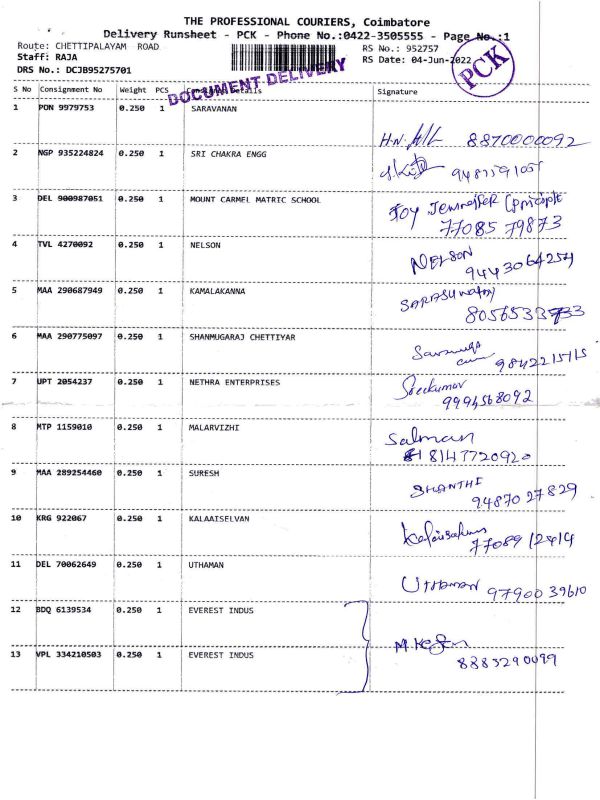 THE PROFESSIONAL COURIERS, Coimbatore
Delivery Runsheet - PCK - Phone No.:0422-3505555 - Page No.:1
Route: CHETTIPALAYAM ROAD RS No.: 952757
Staff: RAJA RS Date: 04-Jun-2022
DRS No.: DCJB95275701
PCK
DOCUMENT DELIVERY
S No Consignment No Weight PCS Consignee Details Signature
1 PON 9979753 0.250 1 SARAVANAN
8870000092
2 NGP 935224824 0.250 1 SRI CHAKRA ENGG
3 DEL 900987051 0.250 1 MOUNT CARMEL MATRIC SCHOOL
77085 79873
4 TVL 4270092 0.250 1 NELSON
NELSON
5 MAA 290687949 0.250 1 KAMALAKANNA
SARASWATHY
6 MAA 290775097 0.250 1 SHANMUGARAJ CHETTIYAR
9842215115
7 UPT 2054237 0.250 1 NETHRA ENTERPRISES
Sreekumar
9994568092
8 MTP 1159010 0.250 1 MALARVIZHI
Salman
8147720920
9 MAA 289254460 0.250 1 SURESH
SHANTHI
9487027829
10 KRG 922067 0.250 1 KALAAISELVAN
77089 12414
11 DEL 70062649 0.250 1 UTHAMAN
UTHAMAN 9790039610
12 BDQ 6139534 0.250 1 EVEREST INDUS
13 VPL 334210503 0.250 1 EVEREST INDUS
8883290099